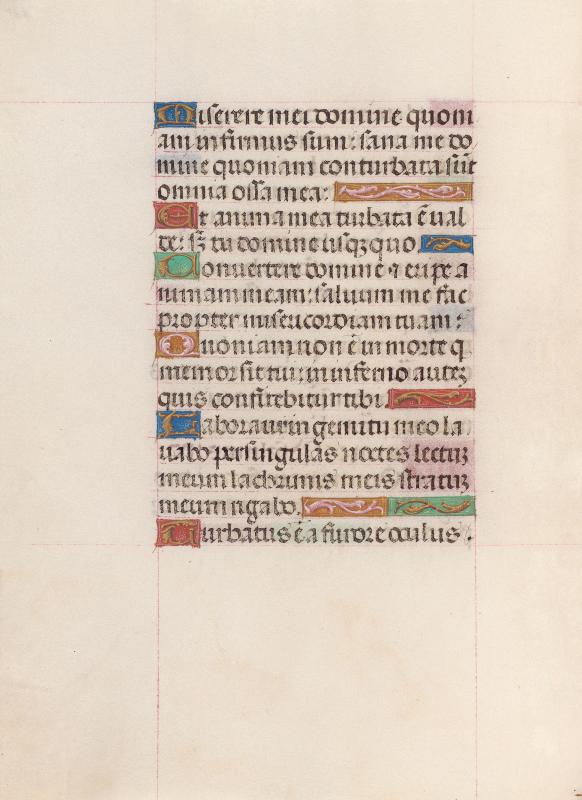 Miserere mei domine quoni
am infirmus sum: sana me do
mine quoniam conturbata sūt
omnia ossa mea:
Et anima mea turbata ē ual
de: sꝫ tu domine usqꝫ quo.
Conuertere domine ⁊ eripe a
nimam meam: saluum me fac
propter misericordiam tuam:
Quoniam non ē in morte q
memor sit tui: in inferno autēꝫ
quis confitebitur tibi.
Laboraui in gemitu meo la
uabo per singulas noctes lectuꝫ
meum lachrimis meis stratuꝫ
meum rigabo.
Turbatus ē a furore oculus.